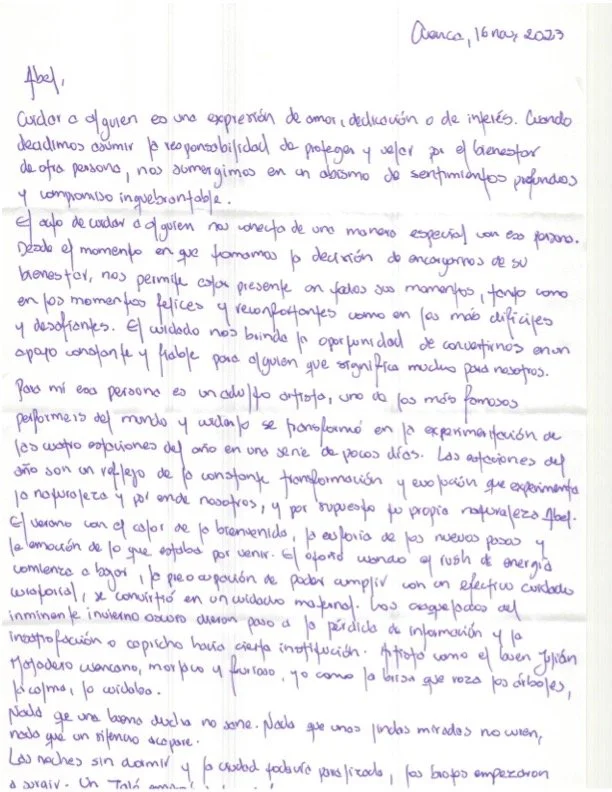 Cuenca, 16 nov, 2023
Abel,
Cuidar a alguien es una expresión de amor, dedicación o de interés. Cuando
decidimos asumir la responsabilidad de proteger y velar por el bienestar
de otra persona, nos sumergimos en un abismo de sentimientos profundos
y compromiso inquebrantable.
El acto de cuidar a alguien nos conecta de una manera especial con esa persona.
Desde el momento en que tomamos la decisión de encargarnos de su
bienestar, nos permite estar presente en todos sus momentos, tanto como
en los momentos felices y reconfortantes como en los más difíciles
y desafiantes. El cuidado nos brinda la oportunidad de convertirnos en un
apoyo constante y fiable para alguien que significa mucho para nosotros.
Para mí esa persona es un adulto artista, uno de los más famosos
performers del mundo y cuidarlo se transformó en la experimentación de
las cuatro estaciones del año en una serie de pocos días. Las estaciones del
año son un reflejo de la constante transformación y evolución que experimenta
la naturaleza y por ende nosotros, y por supuesto tu propia naturaleza Abel.
El verano con el calor de la bienvenida, la euforia de los nuevos pasos y
la emoción de lo que estaba por venir. El otoño cuando el rush de energía
comienza a bajar, la preocupación de poder cumplir con un efectivo cuidado
curatorial, se convirtió en un cuidado maternal. Los coletazos del
inminente invierno oscuro dieron paso a la pérdida de información y la
insatisfacción o capricho hacia cierta institución. Artista como el buen Julián
Matadero cuencano, morlaco y furioso, yo como la brisa que roza los árboles,
la calma, lo cuidaba.
Nada que una buena ducha no sane. Nada que unas lindas miradas no curen,
nada que un silencio acapare.
Las noches sin dormir y la ciudad todavía paralizada, los brotes empezaron
a surgir. Un